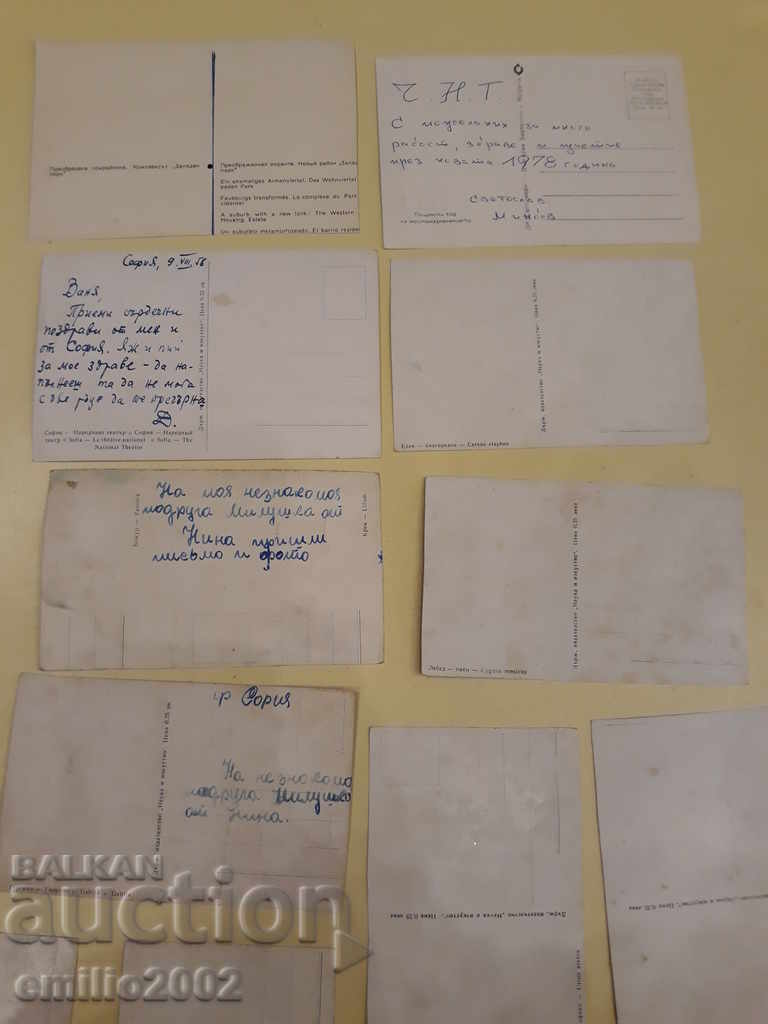 Преобразена покрайнина. Комплексът „Западен парк“
Преображенная окраина. Новый район „Запад
парк“
Ein ehemaliges Armenviertel. Das Wohnviertel
paden Park
Faubourgs transformés. Le complexe du Parc
cidental
A suburb with a new look: The Western
Housing Estate
Un suburbio metamorfoseado. El barrio
Ч. Н. Г.
С пожелания за много
радост, здраве и щастие
през новата 1978 година
Светослав
Минков
София, 9 VIII, 56
Ваня,
Приеми сърдечни
поздрави от мен и
от София. Яж и пий
за мое здраве - да на-
пълнееш та да не мога
с две ръце да те прегърна
Д.
Държ. издателство „Наука и изкуство“. Цена 0,25 лв.
София — Народния театър • София — Народный
театр • Sofia — Le théâtre national • Sofia — The
National Theatre
Държ. издателство „Наука и изкуство“. Цена 0,25 лева
На моя незнакомоя
подруга Милушка от
Нина пришли
письмо и фото
Крем
Държ. издателство „Наука и изкуство“. Цена 0,25 лева
гр София
На незнакомо
подруга Милушко
от Нина.
Държ. издателство „Наука и изкуство“. Цена 0,25 лв.
Държ. издателство „Наука и изкуство“. Цена 0,25 лева
Цена 0,25 лева
BALKAN
auction
emilio2002